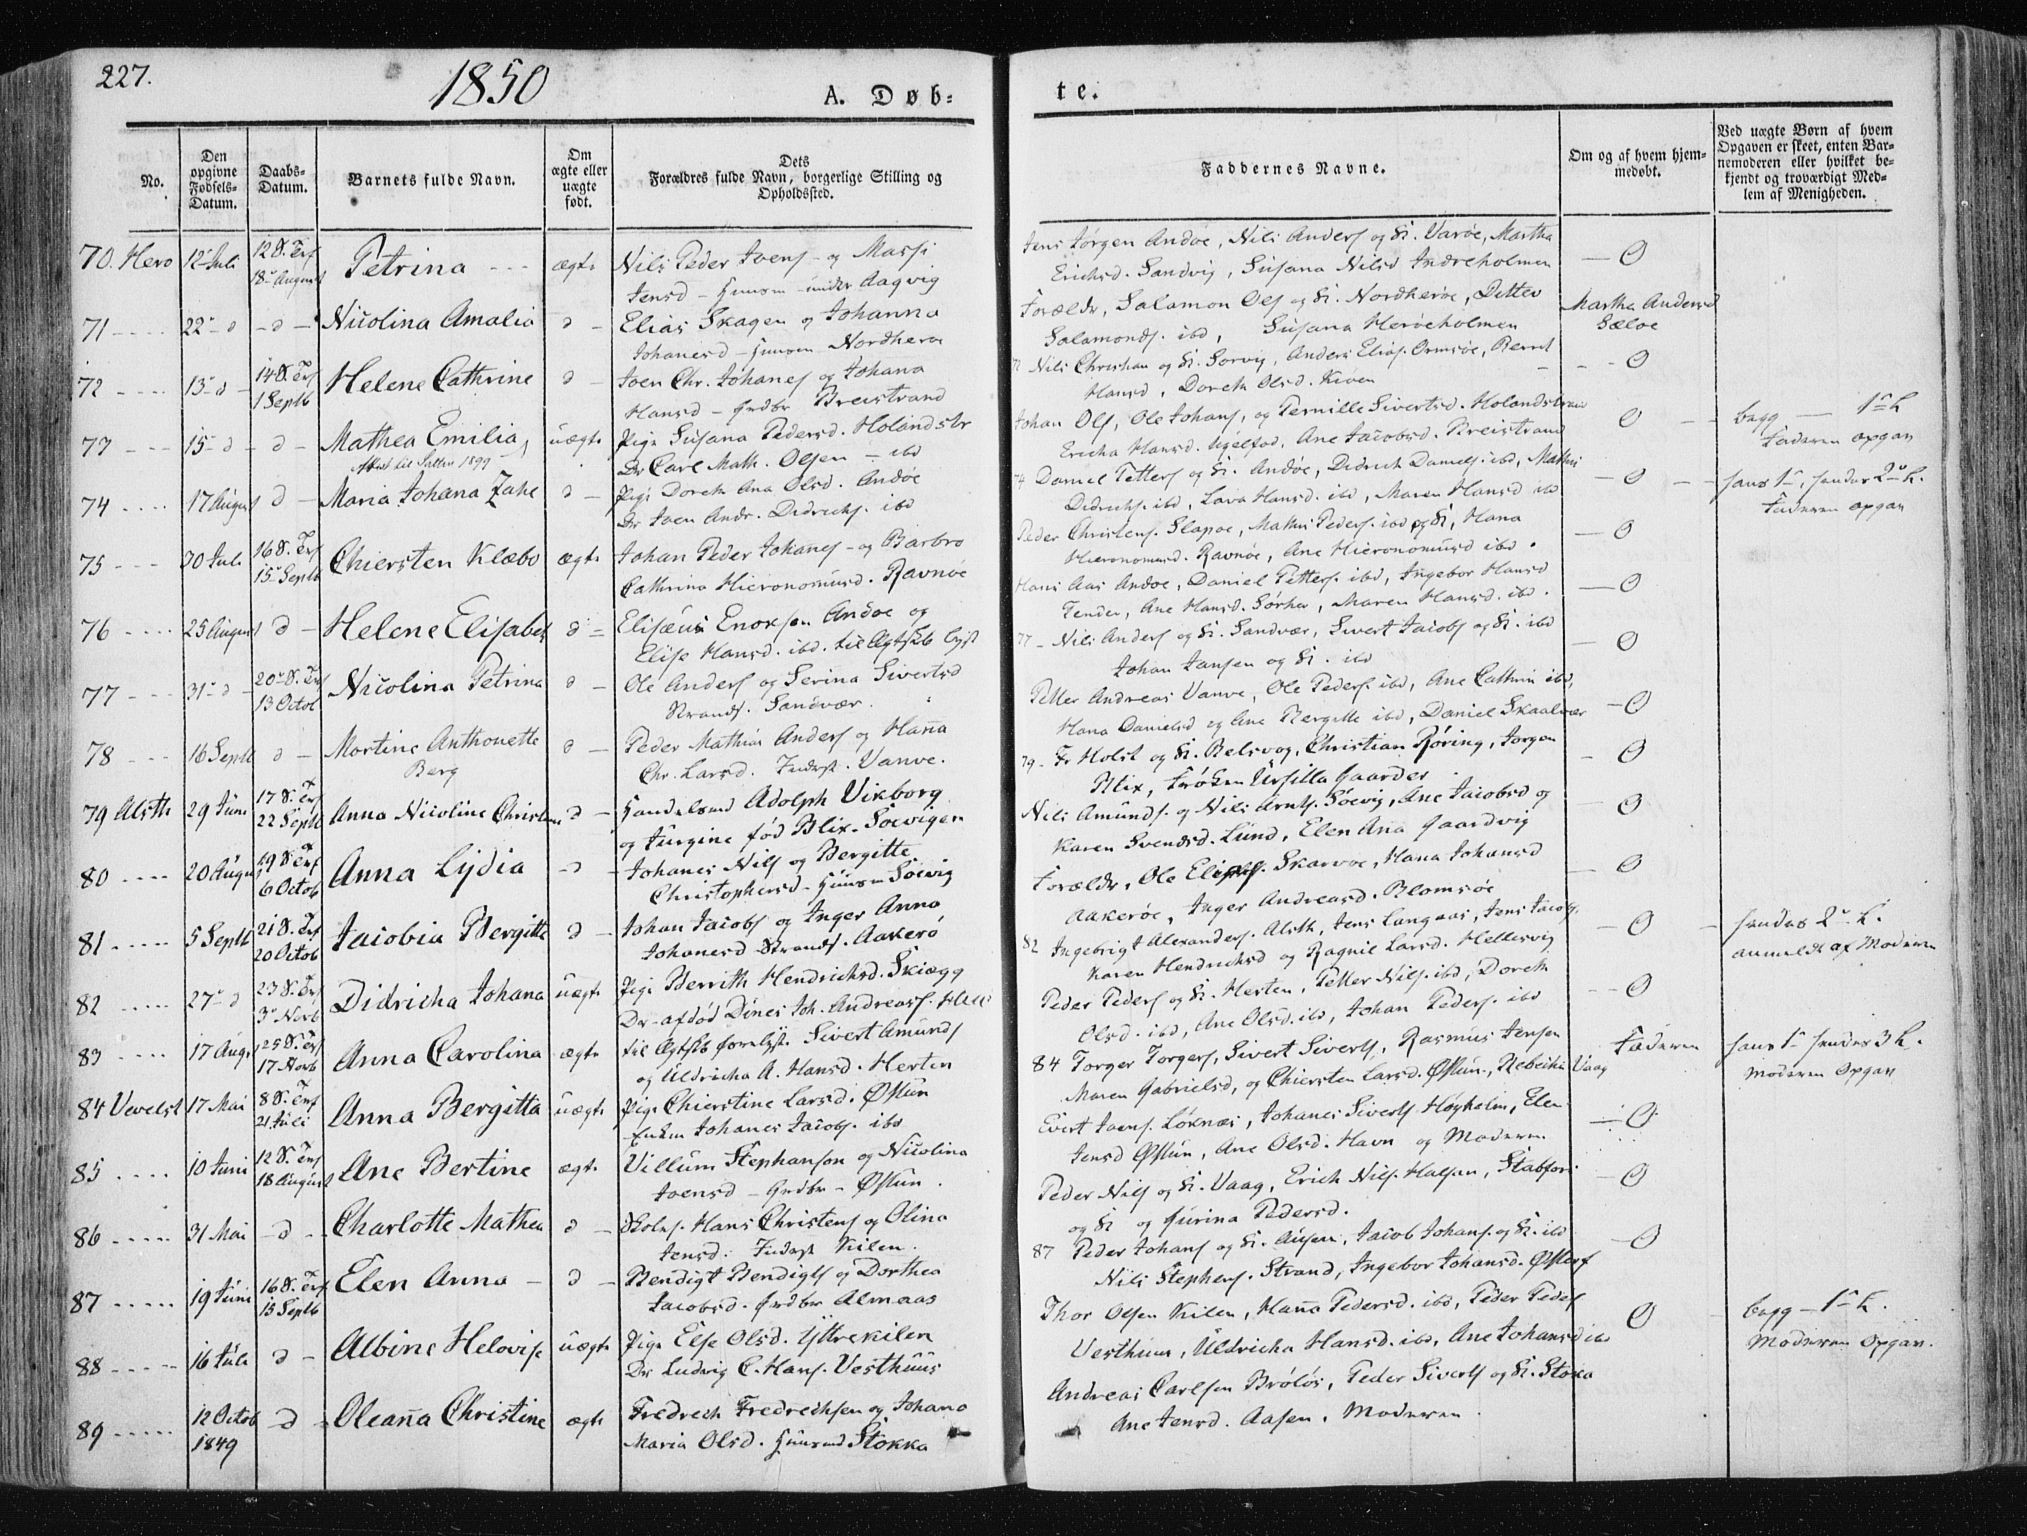 227.
1850
A. Døb=
te.
No.
Den opgivne Fødsels-Datum.
Daabs-Datum.
Barnets fulde Navn.
Om ægte eller uægte født.
Dets Forældres fulde Navn, borgerlige Stilling og Opholdssted.
Faddernes Navne.
Om og af hvem hjemmedøbt.
Ved uægte Børn af hvem Opgaven er skeet, enten Barnemoderen eller hvilket bekjendt og troværdigt Medlem af Menigheden.
70. Hero 12 Juli 12 S. Trf 18 August Petrina ægte Nils Peder Joens og Massi
Jensd - Huusm under Aagvig
Jens Jørgen Andøe, Nils Anders og K. Varøe, Martha
Erichsd. Sandvig, Susana Nilsd Indreholmen
71 22 d - d - Nicolina Amalia d - Elias Skagen og Johanna
Johanesd - Huusm Nordherøe
Forældr, Salamon Ols og K. Nordherøe, Detlev
Salamons. ibd, Susana Herøeholmen
Martha Andersd Sæløe
72 13 d - 14 S. Trf 1 Septb Helene Cathrine d - Joen Chr. Johanes og Johana
Hansd - Grdbr Breistrand
Nils Christian og K. Sørvig, Anders Elias. Ormsøe, Bernt
Hansd, Doreth Olsd. Kiøen
77 15 d - d - Mathea Emilia uægte Pige Susana Pedersd. Holandstr
Attest til Salten 1899
Dr Carl Math. Olsen - ibd
Johan Ols, Ole Johans, og Pernille Sivertsd. Holandstrand
Ericha Hansd. Ugelsod, Ane Jacobsd. Breistrand
begg - 1ste L
Faderen opgav
74 17 August d - Maria Johana Zahl d - Pige Doreth Ana Olsd. Andøe
Dr Joen Andr. Didrichs. ibd
74 Daniel Petters og K. Andøe, Didrich Daniels. ibd, Mathis
Didrichs. ibd, Lava Hansd. ibd, Maren Hansd ibd
hans 1, hendes 2 L.
Faderen opgav
75 30 Juli 16 S. Trf 15 Septb Chiersten Klæbo ægte Johan Peder Johanes - og Barbro
Cathrina Hieronomusd. Ravnøe
Peder Christens. Slapøe, Mathis Peders. ibd og K, Hana
Hieronomusd. Ravnøe, Ane Hieronomusd ibd.
76 25 August d - Helene Elisabet d - Elisæus Enoksen Andøe og
Elise Hansd. ibd. til Ægtskb lyst
Hans Aas Andøe, Daniel Petters. ibd, Ingebor Hansd
Tender, Ane Hansd. Sørher, Maren Hansd. ibd.
77 31 d - 20 S. Trf 13 Octob Nicolina Petrina d - Ole Anders og Serina Sivertsd
Strands. Sandvær.
77 - Nils Anders og K. Sandvær, Sivert Jacobs og K. ibd
Johan Jansen og K. ibd
78 16 Septb d - Martine Anthonette Berg d - Peder Mathias Anders og Hanna
Chr. Larsd. Indrst. Vanve.
Petter Andreas Vanve, Ole Peders. ibd, Ane Cathrin ibd,
Hana Danielsd og Ane Bergitte ibd, Daniel Skaalvær
79 Alsth 29 Juni 17 S. Trf 22 Septb Anna Nicoline Christine d - Handelsmd Adolph Vikborg
og Jurgine fød Blix. Søevigen
79 - Fr Holst og K. Belsvog, Christian Røring, Jørgen
Blix, Frøken Ursilla Gaarder
80 20 August 19 S. Trf 6 Octob Anna Lydia - d - Johanes Nils og Bergitte
Christophersd - Huusm Søevig
Nils Amunds. og Nils Arnts. Søevig, Ane Jacobsd og
Karen Svendsd. Lund, Elen Ana Gaardvig
81 5 Septb 21 S. Trf 20 Octob Jacobia Bergitte d - Johan Jacobs og Inger Anna
Johanesd Strands. Aakerø
Forældr, Ole Elias. Skarvøe, Hana Johansd
Aakerøe, Inger Andreasd. Blomsøe
82 27 d 23 S. Trf 3 Novb Didricha Johana uægte Pige Berrith Hendrichsd. Skiægg
Dr - afdød Dines Joh. Andreass.
82 Ingebrigt Alexanders. Alsth, Jens Langaas, Jens Jacobs.
Karen Hendrichsd og Ragnil Larsd. Hellesvig
hendes 2 L.
anmeldt af Moderen
83 17 Aug. 25 S. Trf 17 Novb Anna Carolina ægte til Ægtskb forelyst Sivert Amunds
og Uldricha A. Hansd. Herten
Peder Peders og K. Herten, Petter Nils. ibd, Doreth
Olsd. ibd, Ane Olsd. ibd, Johan Peders. ibd
84 Vevelst 17 Mai 8 S. Trf 21 Juli Anna Bergitta uægte Pige Chierstine Larsd. Østun
Enkm Johanes Jacobs. ibd
84 Torger Torgers, Sivert Siverts, Rasmus Jensen
Maren Gabrielsd, og Chiersten Larsd. Østun, Rebecka Vaag
Faderen
hans 1 hendes 3 L.
Moderen Opgav
85 10 Juni 12 S. Trf 18 August Ane Bertine ægte Villum Stephanson og Nicolina
Joensd - Grdbr - Østun.
Evert Joens. Løknæs, Johanes Siverts Høyholm, Elen
Jensd Østun, Ane Olsd. Havn og Moderen
86 31 Mai - d - Charlotte Mathea d - Skolhs. Hans Christens og Olina
Jensd. Inderst Kilen.
Peder Nils og K. Vaag, Erich Nils. Halsan, Stabfor.
og K og Jurina Pedersd.
87 19 Juni 16 S. Trf 15 Septb Elen Anna - d - Bendigt Bendigts og Dorthea
Jacobsd. Grdbr Almaas
87 Peder Johans og K. Aúsen, Jacob Johans. og K. ibd
Nils Stephens. Strand, Ingebor Johansd.
88 16 Juli d - Albine Helovise uægte Pige Else Olsd. Ytrekilen
Dr Ludvig C. Hans. Vesthuus
Thor Olsen Kilen, Hana Pedersd. ibd, Peder Peders
Vesthuus, Uldricha Hansd. ibd, Ane Johansd ibd
begg - 1 L.
Moderen Opgav.
89 12 Octob 1849 - d - Oleanna Christine ægte Fredrech Fredrechsen og Johana
Maria Olsd. Huusmd Stokka
Andreas Carlsen Brøløs, Peder Siverts og K. Stoka
Ane Jensd. Aasen, Moderen.